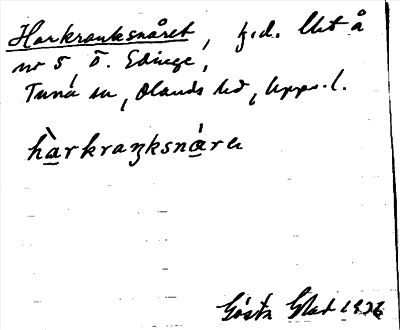 Harkranksnåret, f.d. litet å
nr 5 Ö. Edinge,
Tuna sn, Olands hd, Upps. l.
hàrkraŋksnárɛ
Gösta Glad 1926